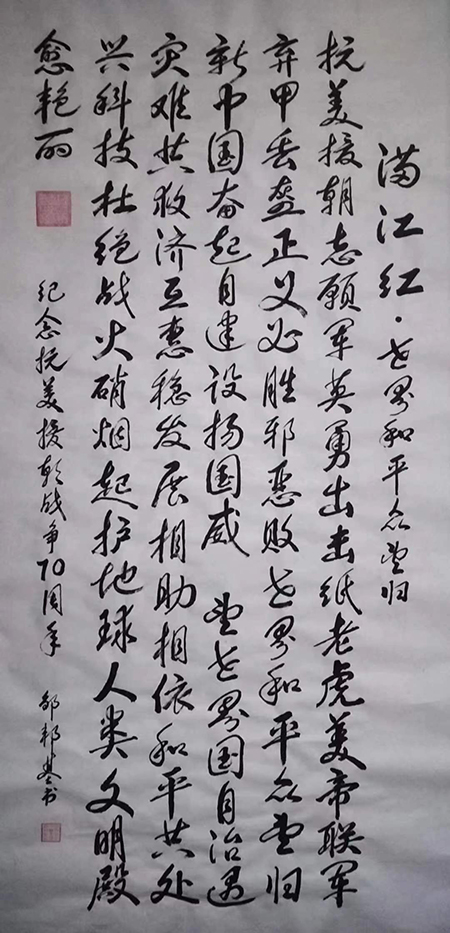 满江红·世界和平众望归
抗美援朝志愿军英勇出击纸老虎美帝联军
弃甲丢盔正义必胜邪恶败世界和平众望归
新中国奋起自建设扬国威 望世界国自治遇
灾难共救济互惠稳发展相助相依和平共处
兴科技杜绝战火硝烟起护地球人类文明殿
愈艳丽
纪念抗美援朝战争70周年 邹邦基书